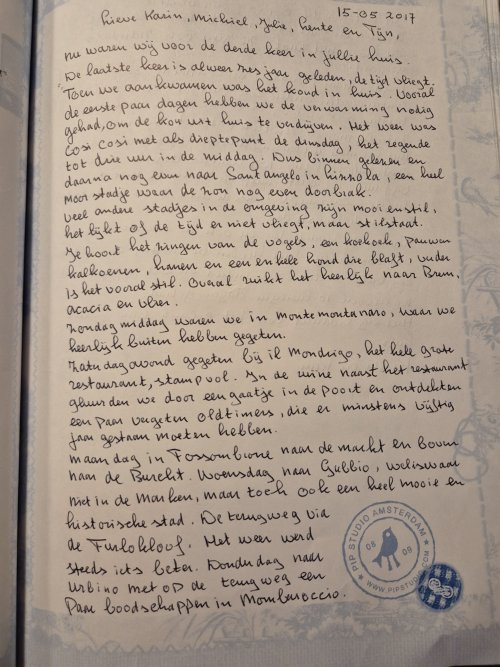 15-05 2017
Lieve Karin, Michiel, Julie, Lente en Tijn,
nu waren wij voor de derde keer in jullie huis.
De laatste keer is alweer zes jaar geleden, de tijd vliegt.
Toen we aankwamen was het koud in huis. Vooral
de eerste paar dagen hebben we de verwarming nodig
gehad, om de kou uit huis te verdrijven. Het weer was
cosi cosi met als dieptepunt de dinsdag, het regende
tot drie uur in de middag. Dus binnen gelezen en
daarna nog even naar Sant'angelo in lizzola, een heel
mooi stadje waar de zon nog even doorbrak.
Veel andere stadjes in de omgeving zijn mooi en stil,
het lijkt of de tijd er niet vliegt, maar stilstaat.
Je hoort het zingen van de vogels, een koekoek, pauwen
kalkoenen, hanen en een enkele hond die blaft, verder
is het vooral stil. Overal ruikt het heerlijk naar Brem,
acacia en vlier.
Zondag middag waren we in Montemontanaro, waar we
heerlijk buiten hebben gegeten.
Zaterdagavond gegeten bij il Mondrigo, het hele grote
restaurant, stampvol. In de ruine naast het restaurant
gluurden we door een gaatje in de poort en ontdekten
een paar vergeten oldtimers, die er minstens vijftig
jaar gestaan moeten hebben.
maandag in Fossombrone naar de markt en boven
naar de Burcht. Woensdag naar Gubbio, weliswaar
niet in de Marken, maar toch ook een heel mooie en
historische stad. De terugweg via
de Furlokloof. Het weer werd
steeds iets beter. Donderdag naar
Urbino met op de terugweg een
paar boodschappen in Mombaroccio.
PIP STUDIO AMSTERDAM
08 09
WWW.PIPSTUDIO.COM